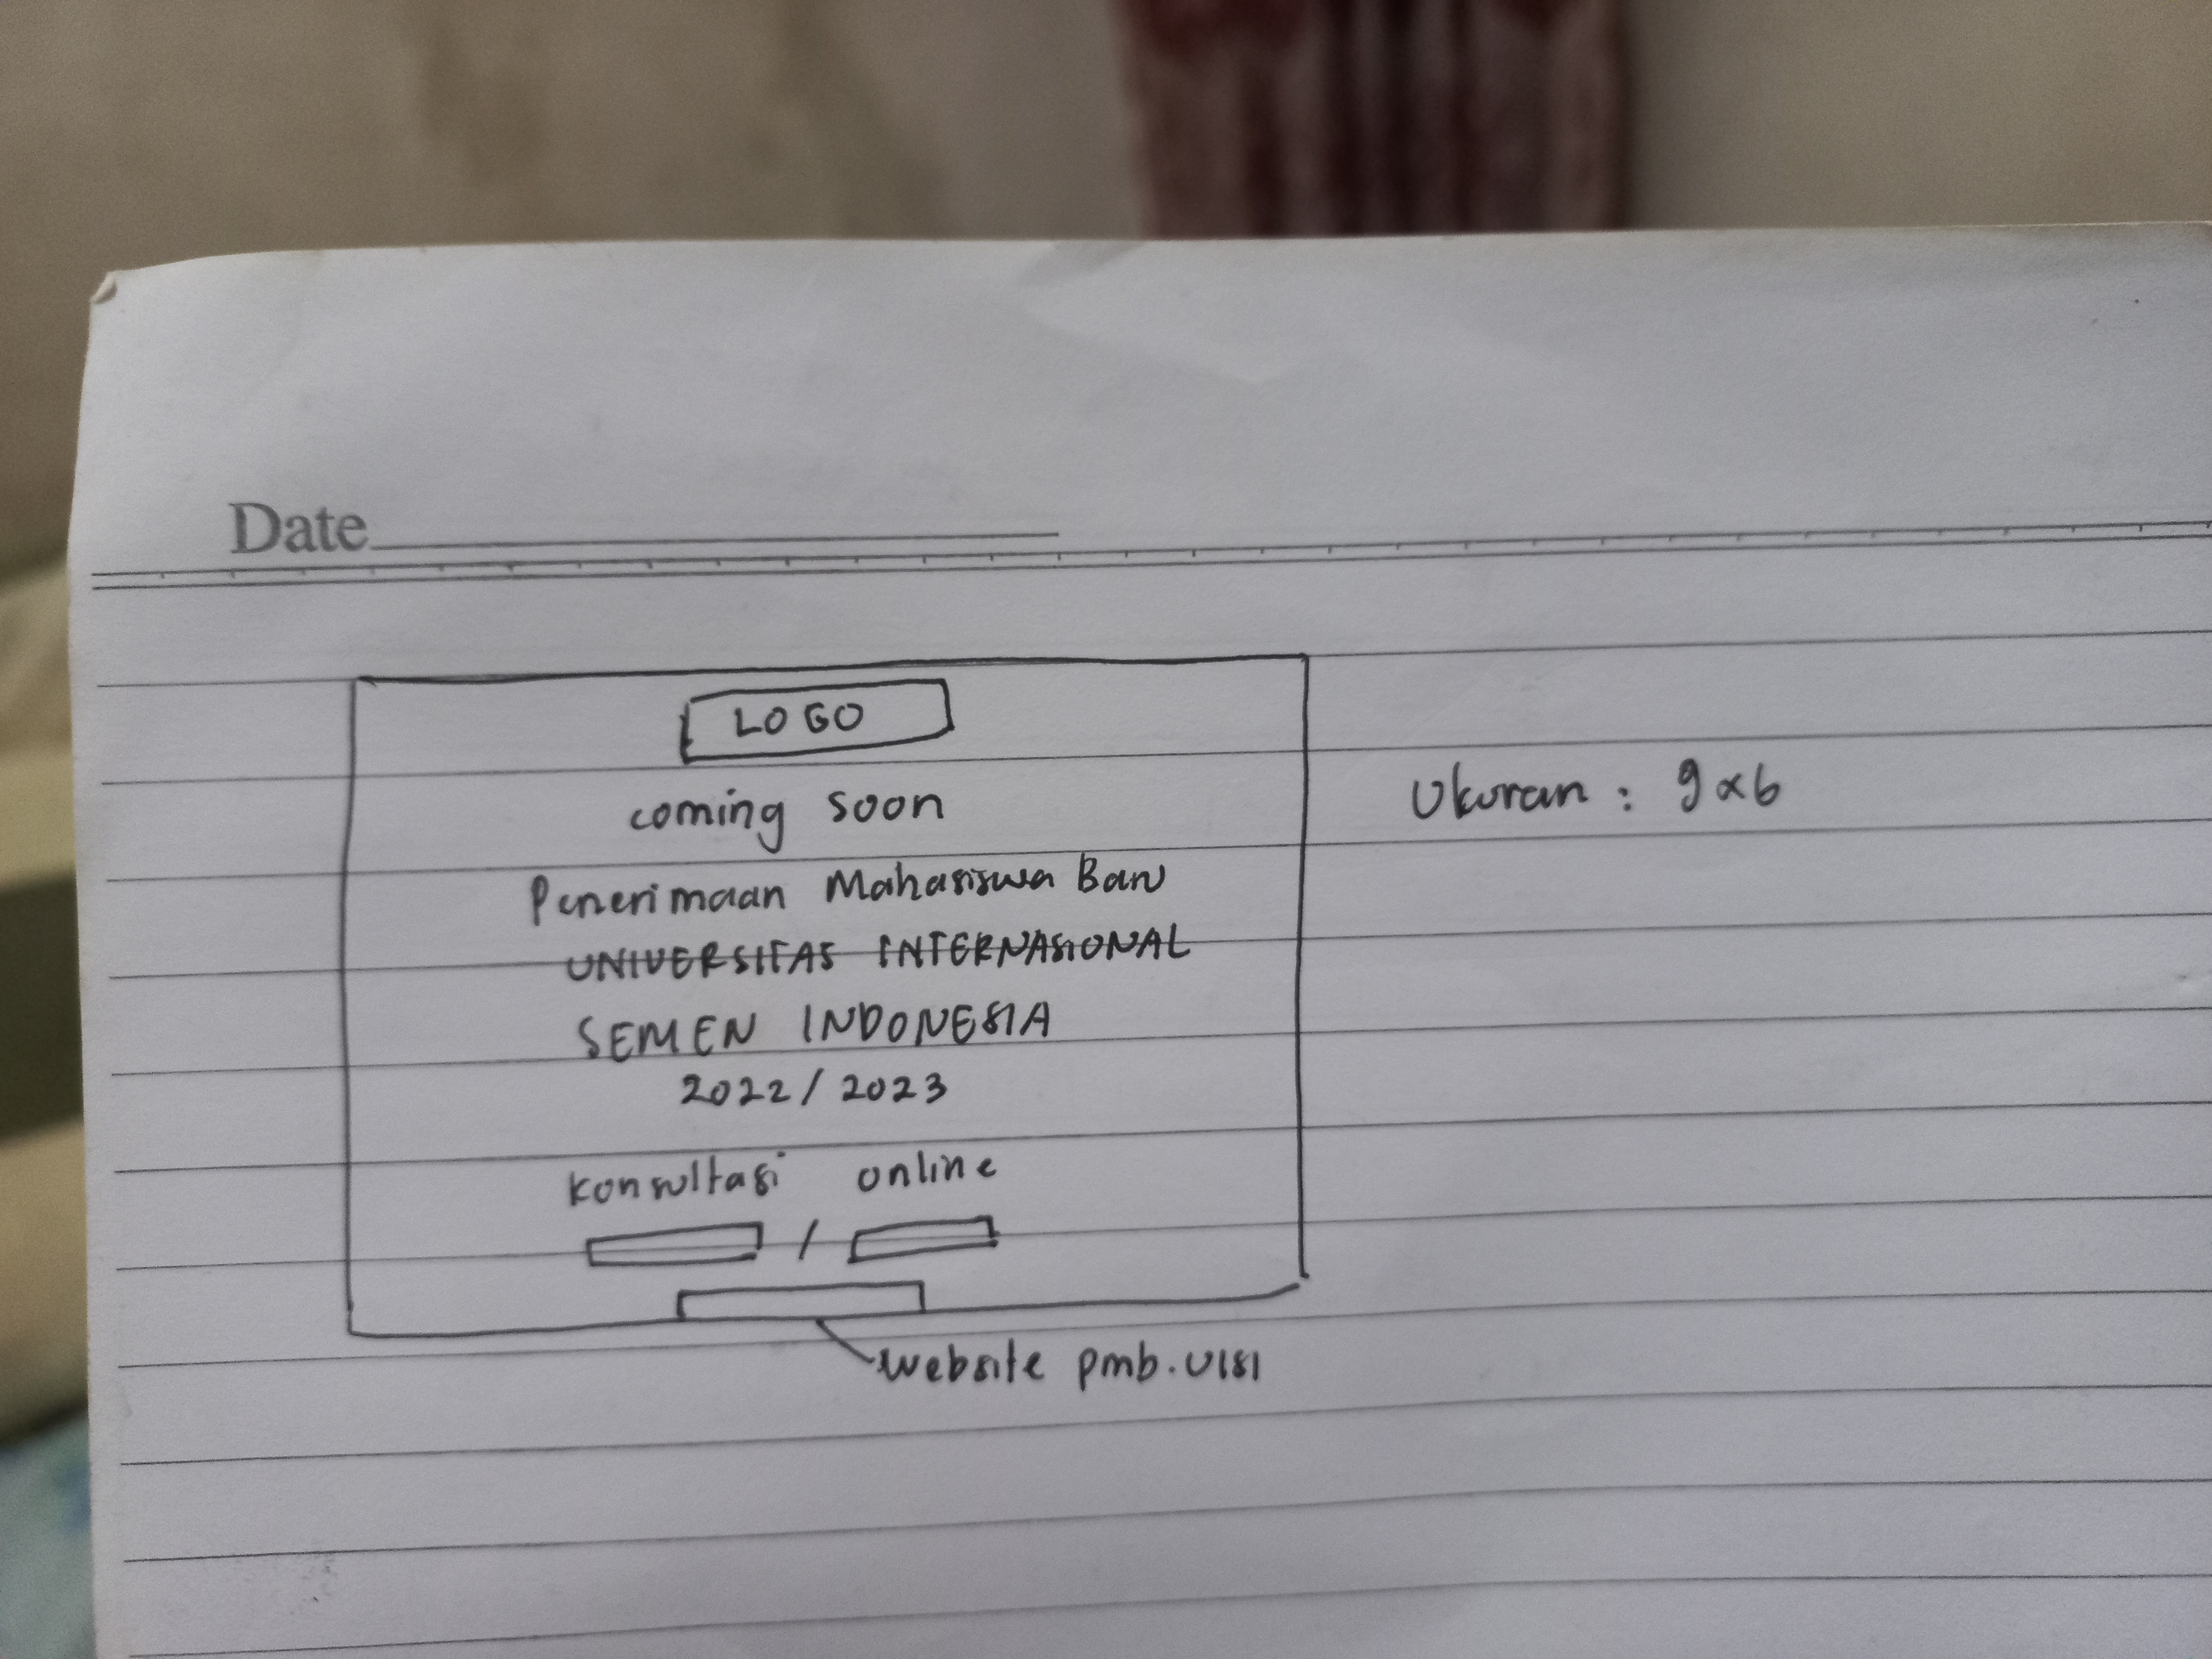 Date
LOGO
coming soon
Ukuran : 9x6
Penerimaan Mahasiswa Baru
UNIVERSITAS INTERNASIONAL
SEMEN INDONESIA
2022/2023
Konsultasi online
/
website pmb.UISI